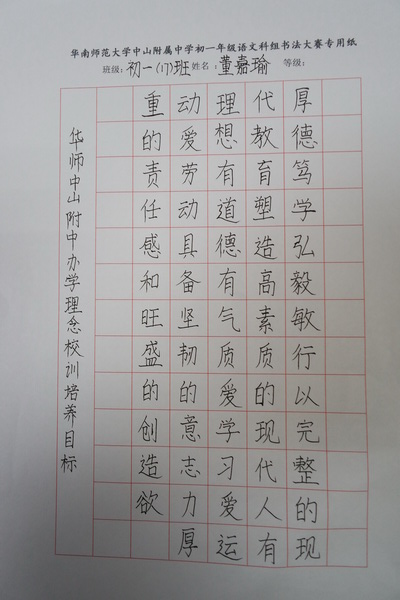 华南师范大学中山附属中学初一年级语文科组书法大赛专用纸
班级：初一(17)班 姓名：董嘉瑜 等级：
厚德笃学弘毅敏行以完整的现
代教育塑造高素质的现代人有
理想有道德有气质爱学习爱运
动爱劳动具备坚韧的意志力厚
重的责任感和旺盛的创造欲
华师中山附中办学理念校训培养目标